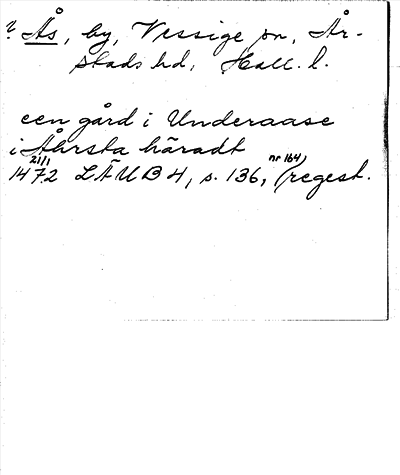 ? Ås, by, Vessige sn, År-
stads hd, Hall. l.
een gård i Underaase
i Åhrsta häradt
1472 21/1 LÄUB 4, s. 136, (nr 164) regest.